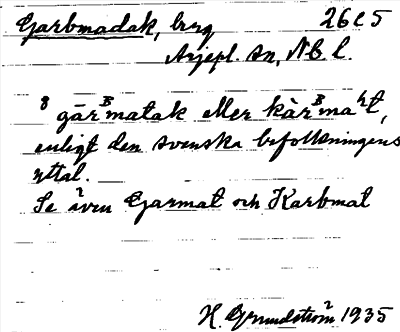 Garbmadak, berg 26C5
Arjepl. sn, N.B.l.
8 gärᴮmatak eller kàrᴮmaʰt,
enligt den svenska befolkningens
uttal.
Se även Garmat och Karbmat
H. Grundström 1935